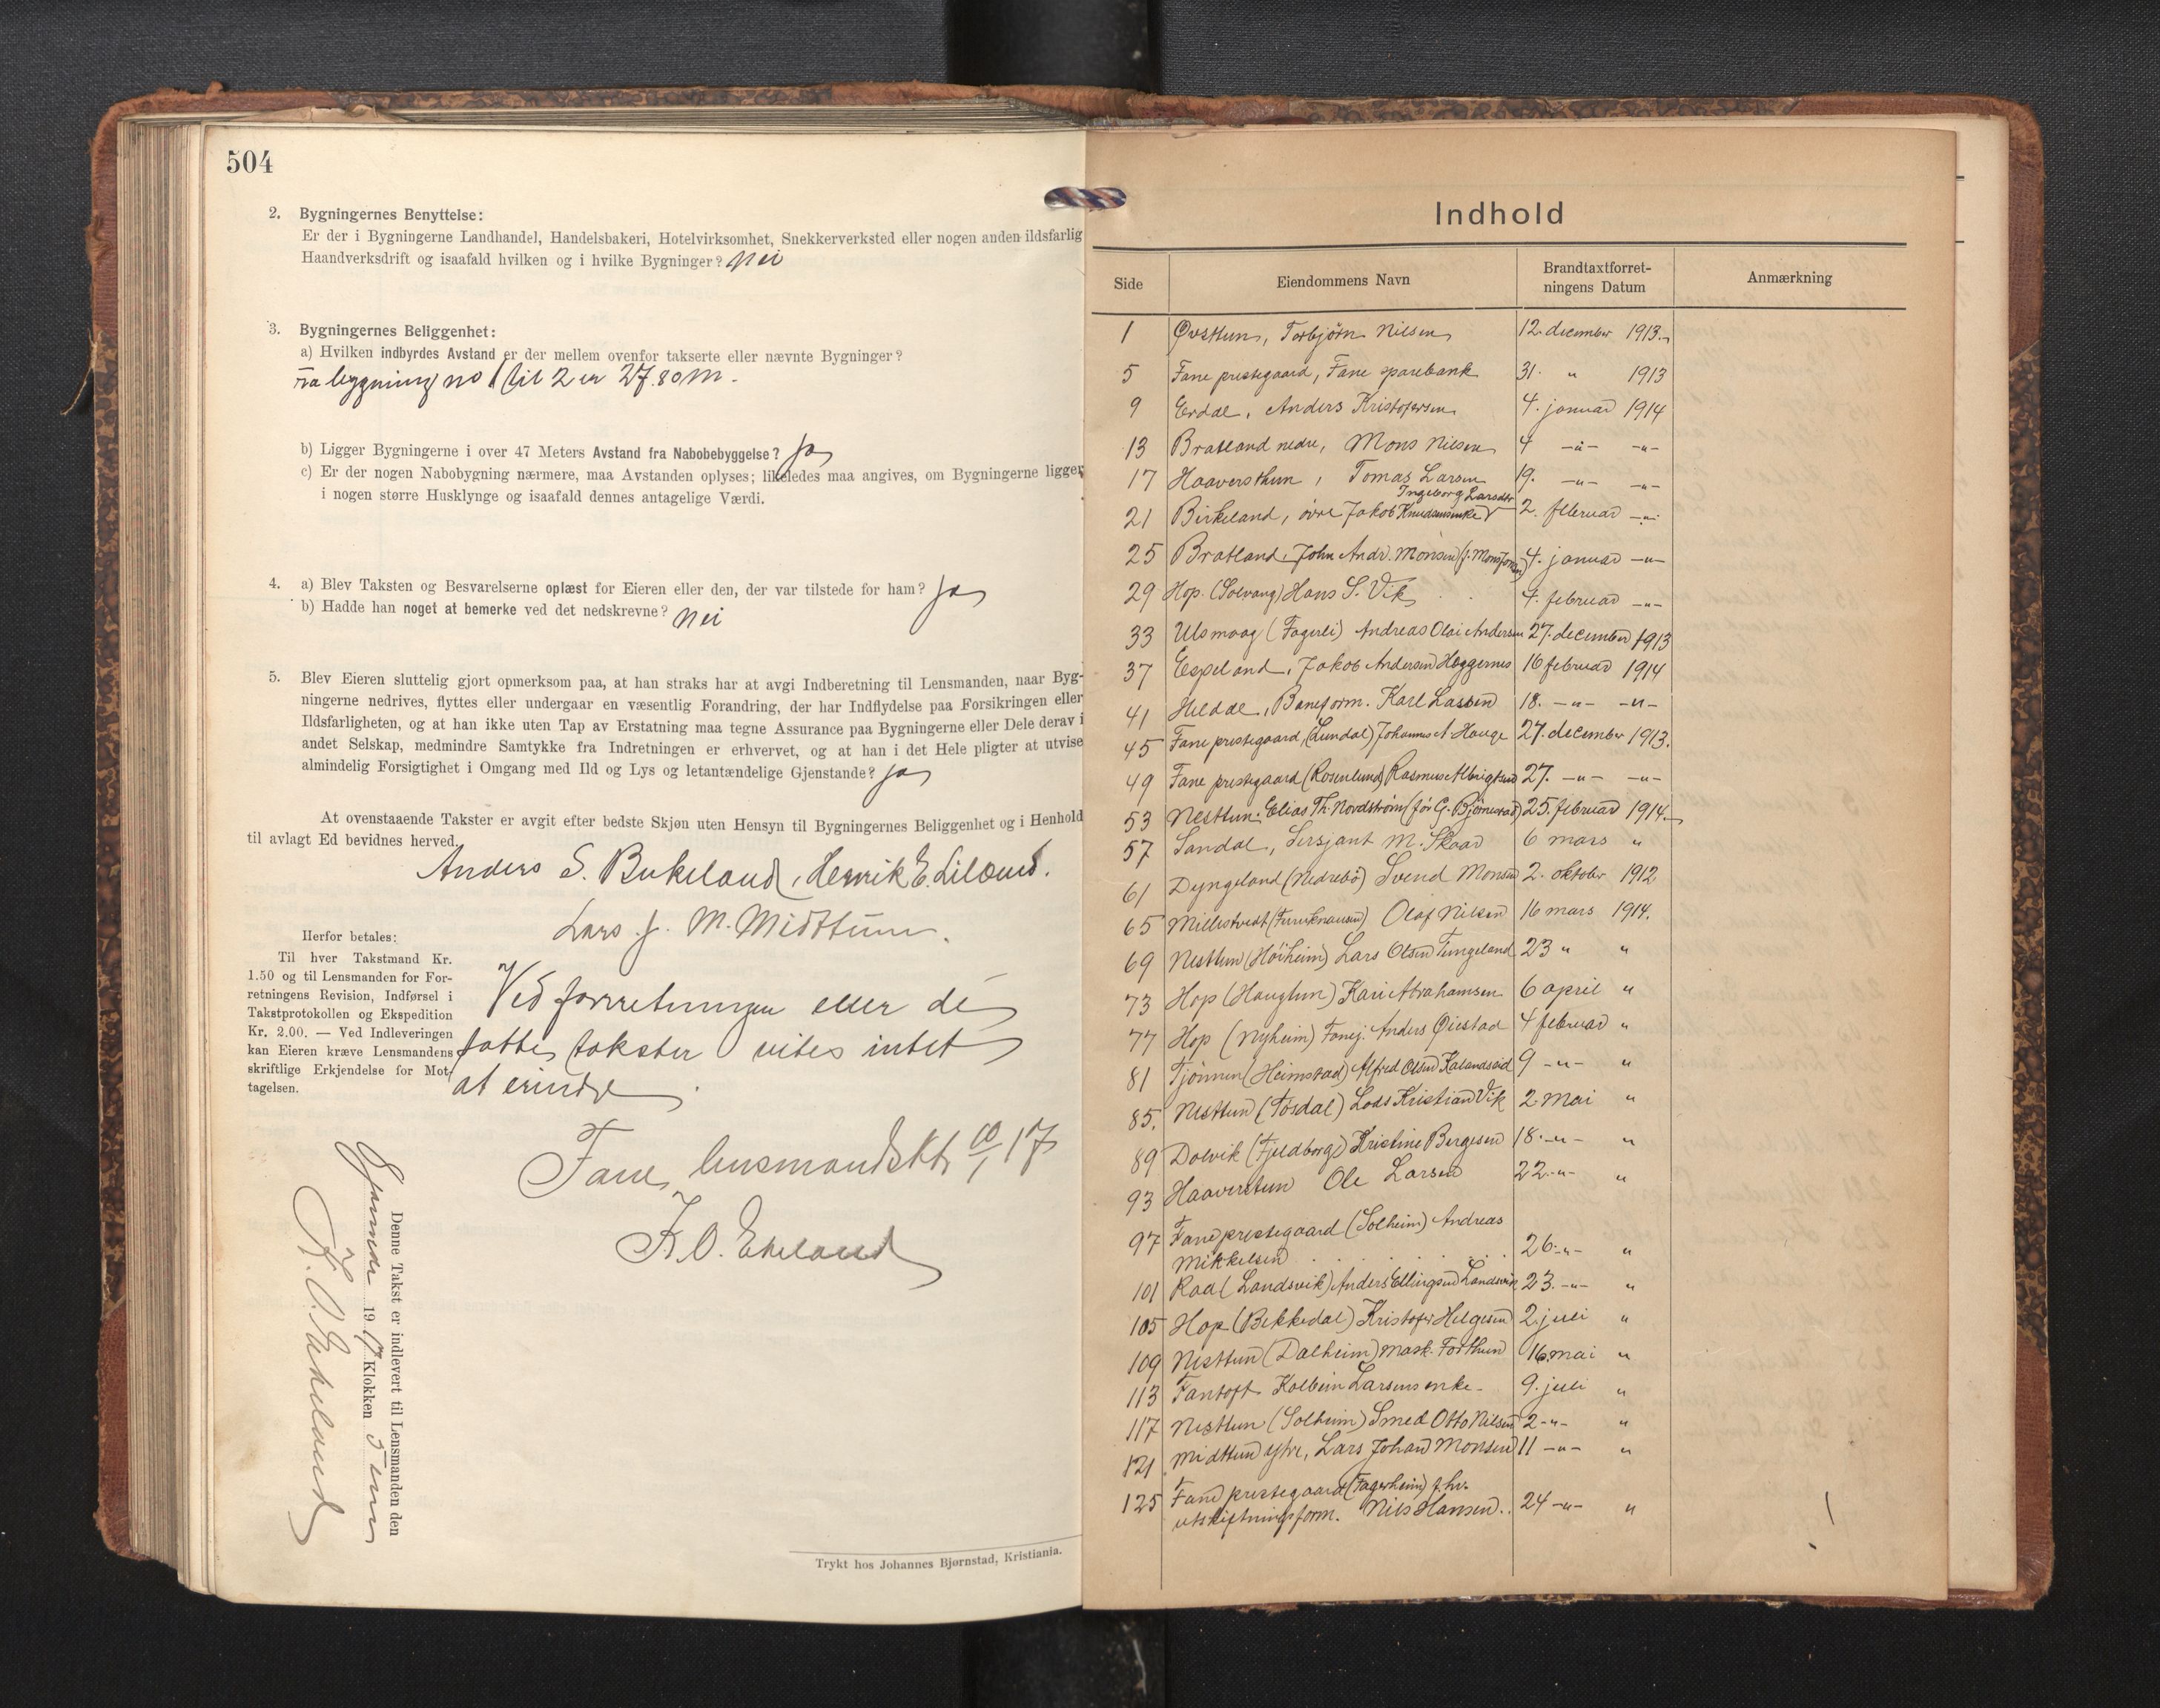 504
2. Bygningernes Benyttelse:
Er der i Bygningerne Landhandel, Handelsbakeri, Hotelvirksomhet, Snekkerverksted eller nogen anden ildsfarlig
Haandverksdrift og isaafald hvilken og i hvilke Bygninger? Nei
3. Bygningernes Beliggenhet:
a) Hvilken indbyrdes Avstand er der mellem ovenfor takserte eller nævnte Bygninger?
Fra bygning no 1 til 2 er 27.80 m.
b) Ligger Bygningerne i over 47 Meters Avstand fra Nabobebyggelse? Ja
c) Er der nogen Nabobygning nærmere, maa Avstanden oplyses; likeledes maa angives, om Bygningerne ligger
i nogen større Husklynge og isaafald dennes antagelige Værdi.
4. a) Blev Taksten og Besvarelserne oplæst for Eieren eller den, der var tilstede for ham? Ja
b) Hadde han noget at bemerke ved det nedskrevne? Nei
5. Blev Eieren sluttelig gjort opmerksom paa, at han straks har at avgi Indberetning til Lensmanden, naar Byg-
ningerne nedrives, flyttes eller undergaar en væsentlig Forandring, der har Indflydelse paa Forsikringen eller
Ildsfarligheten, og at han ikke uten Tap av Erstatning maa tegne Assurance paa Bygningerne eller Dele derav i
andet Selskap, medmindre Samtykke fra Indretningen er erhvervet, og at han i det Hele pligter at utvise
almindelig Forsigtighet i Omgang med Ild og Lys og letantændelige Gjenstande? Ja
At ovenstaaende Takster er avgit efter bedste Skjøn uten Hensyn til Bygningernes Beliggenhet og i Henhold
til avlagt Ed bevidnes herved.
Anders S. Birkeland, Henrik E. Lilând.
Lars J. M. Midttun.
Herfor betales:
Til hver Takstmand Kr.
1.50 og til Lensmanden for For-
retningens Revision, Indførsel i
Takstprotokollen og Ekspedition
Kr. 2.00. — Ved Indleveringen
kan Eieren kræve Lensmandens
skriftlige Erkjendelse for Mot-
tagelsen.
Ved forretningen eller de
satte takster vites intet
at erindre.
Fane lensmandskt. 10/1 17
K. O. Ekeland
Denne Takst er indlevert til Lensmanden den
9 januar 1917 Klokken 5 em
K. O. Ekeland
Trykt hos Johannes Bjørnstad, Kristiania.
Indhold
Side Eiendommens Navn Brandtaxtforret-ningens Datum Anmærkning
1 Øvsttun, Torbjørn Nilsen 12. december 1913.
5 Fane prestegaard, Fane sparebank 31. " 1913
9 Erdal, Anders Kristofersen 4. januar 1914
13 Bratland nedre, Mons Nilsen 4 -"- -"-
17 Haaversthun, Tomas Larsen 19. -"- -"-
Ingeborg Larsdtr
21 Birkeland, övre Jakob Knudsens enke 2. februar -"-
25 Bratland, John Andr. Monsen (f. Mons Johnsen) 4. januar -"-
29 Hop (Solvang) Hans S. Vik 4. februar -"-
33 Ulsmaag (Fagerli) Andreas Olai Andersen 27. december 1913
37 Espeland, Jakob Andersen Heggernes 16 februar 1914
41 Heldal, Baneform. Karl Lassen 18. -"- -"-
45 Fane prestegaard, (Lundal) Johannes A. Hauge 27. december 1913.
49 Fane prestegaard (Rosenlund) Rasmus Albrigtsen 27. -"- -"-
53 Nesttun. Elias Th. Nordström (för G. Björnestad) 25. februar 1914.
57 Sandal, Sersjant M. Skaar 6 mars "
61 Dyngeland (Nedrebö) Svend Monsen 2. oktober 1912
65 Olaf Nilsen 16 mars 1914.
69 Nesttun (Höiheim) Lars Olsen Tungeland 23 " "
73 Hop (Haugtun) Kari Abrahamsen 6 april "
77 Hop (Nyheim) Fanej. Anders Øiestad 4 februar "
81 Tjönnen (Heimstad) Alfred Olsen Kalandseid 9 -"- "
85. Nesttun (Fosdal) Lods Kristian Vik 2 mai "
89 Dolvik (Fjeldborg) Kristine Bergesen 18. -"- "
93 Haaverstun Ole Larsen 22. -"- "
97 Fane prestegaard (Solheim) Andreas
Mikkelsen 26. -"- "
101 Raa (Landsvik) Anders Ellingsen Landsvik 23. -"- "
105 Hop (Bekkedal) Kristofer Helgesen 2. juli "
109 Nesttun (Dalheim) Mask. Forthun 16. mai "
113 Fantoft Kolbein Larsens enke 9. juli "
117 Nesttun (Solheim) Smed Otto Nilsen 2 -"- "
121 Midttun ytre, Lars Johan Monsen 11 -"- "
125 Fane prestegaard (Fagerheim) f. hv.
utskiftningsform. Nils Hansen. 24 -"- "